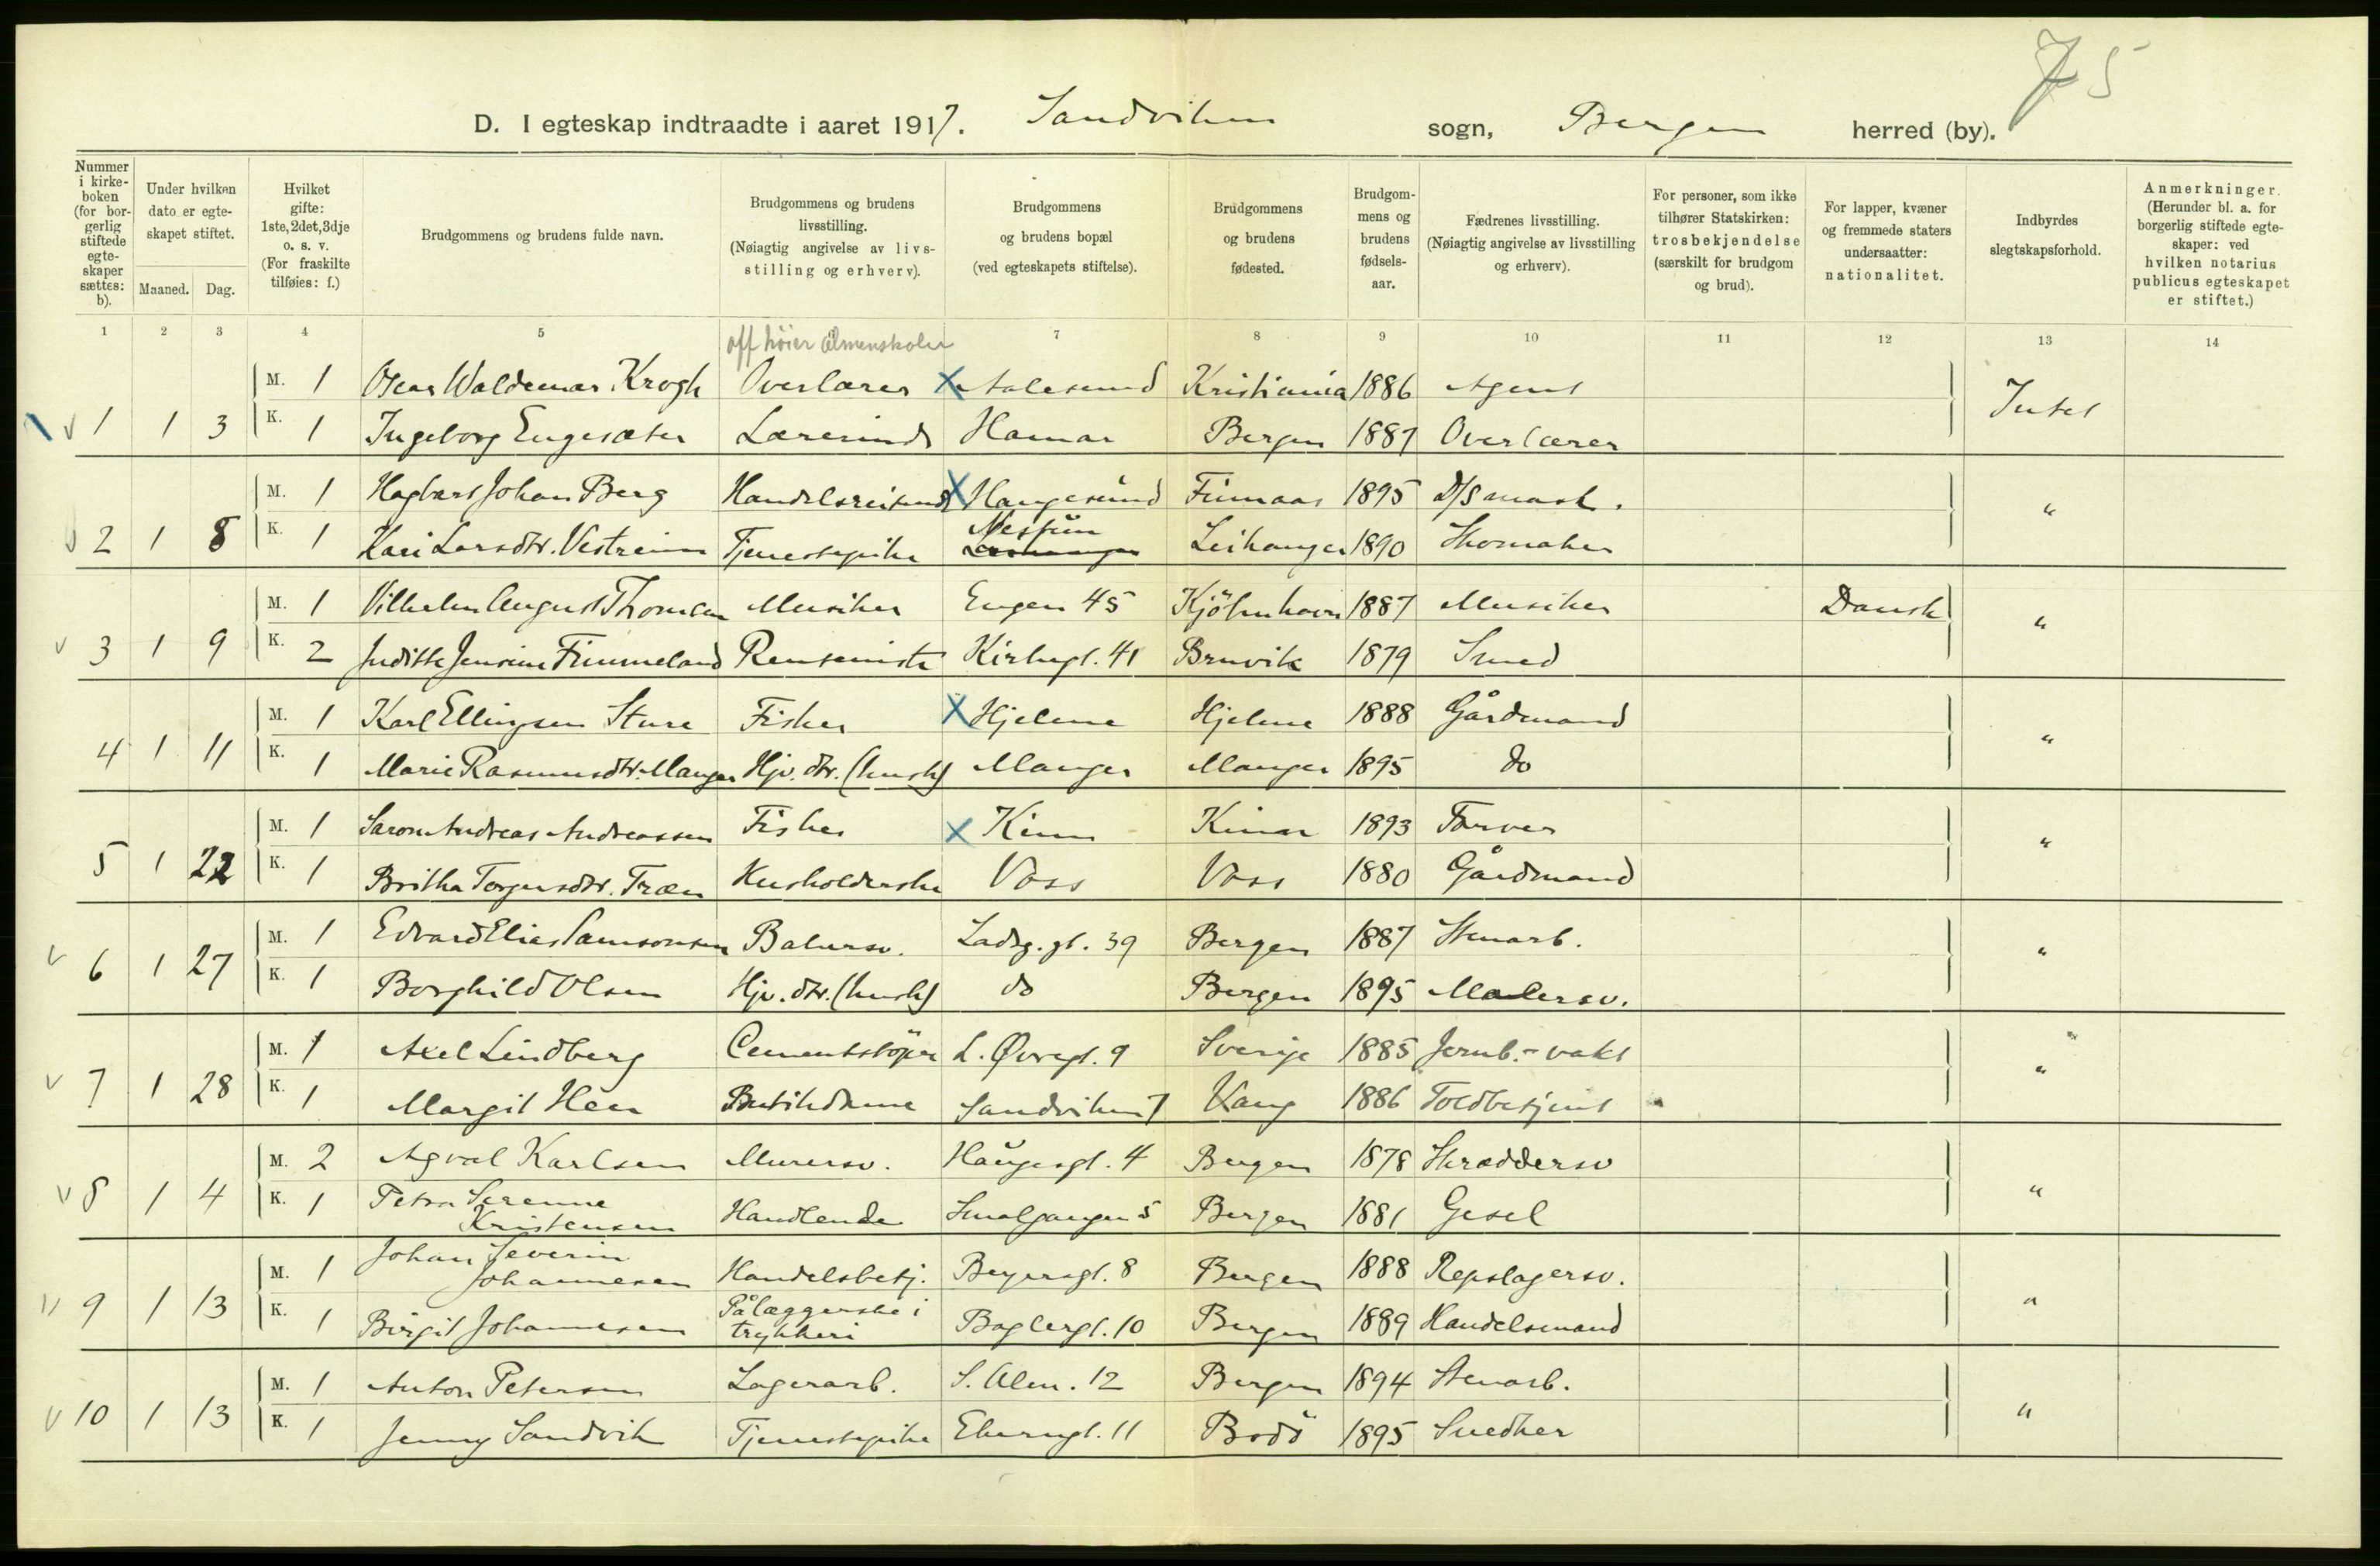 75
D. I egteskap indtraadte i aaret 1917. Sandviken sogn, Bergen herred (by).
Nummer i kirkeboken (for borgerlig stiftede egteskaper sættes: b).
Under hvilken dato er egteskapet stiftet.
Maaned. Dag.
Hvilket gifte: 1ste, 2det, 3dje o. s. v. (For fraskilte tilføies: f.)
Brudgommens og brudens fulde navn.
Brudgommens og brudens livsstilling. (Nøiagtig angivelse av livsstilling og erhverv).
Brudgommens og brudens bopæl (ved egteskapets stiftelse).
Brudgommens og brudens fødested.
Brudgommens og brudens fødselsaar.
Fædrenes livsstilling. (Nøiagtig angivelse av livsstilling og erhverv).
For personer, som ikke tilhører Statskirken: trosbekjendelse (særskilt for brudgom og brud).
For lapper, kvæner og fremmede staters undersaatter: nationalitet.
Indbyrdes slegtskapsforhold.
Anmerkninger. (Herunder bl. a. for borgerlig stiftede egteskaper: ved hvilken notarius publicus egteskapet er stiftet.)
1 2 3 4 5 7 8 9 10 11 12 13 14
off höier almenskoler
M. 1 Oscar Waldemar Krogh Overlærer X Aalesund Kristiania 1886 Agent
1 1 3 K. 1 Ingeborg Engesæter Lærerinde Hamar Bergen 1887 Overlærer Intet
M. 1 Hagbart Johan Berg Handelsreisende X Haugesund Finnaas 1895 D/S mask.
2 1 8 K. 1 Kari Larsdtr. Vestreim Tjenestepike Nestun Leikanger 1890 Skomaker "
M. 1 Vilhelm August Thomsen Musiker Engen 45 Kjöbenhavn 1887 Musiker Dansk
3 1 9 K. 2 Juditte Jensine Fimmeland Rensemiste Kirkegt. 41 Bruvik 1879 Smed "
M. 1 Karl Ellingsen Sture Fisker X Hjelme Hjelme 1888 Gårdmand
4 1 11 K. 1 Marie Rasmusdtr. Manger Hjv. dtr. (hush) Manger Manger 1895 do "
M. 1 Saron Andreas Andreassen Fisker X Kinn Kinn 1893 Farver
5 1 22 K. 1 Britha Torgersdtr. Træen Husholderske Voss Voss 1880 Gårdmand "
M. 1 Edvard Elias Samsonsen Bakersv. Ladeg.gt. 39 Bergen 1887 Stenarb.
6 1 27 K. 1 Borghild Olsen Hjv. dtr. (hush) do Bergen 1895 Malersv. "
M. 1 Axel Lindberg Cementstöper L. Øvregt. 9 Sverige 1885 Jernb.-vakt "
7 1 28 K. 1 Margit Heen Butikdame Sandviken 7 Vang 1886 Toldbetjent "
M. 2 Agval Karlsen Murersv. Haugesgt. 4 Bergen 1878 Skræddersv
8 1 4 K. 1 Petra Serenne Kristensen Handlende Smalgangen 5 Bergen 1881 Gesel "
M. 1 Johan Severin Johannesen Handelsbetj. Beyersgt. 8 Bergen 1888 Repslagersv.
9 1 13 K. 1 Birgit Johannesen Pålæggerske i trykkeri Baglergt. 10 Bergen 1889 Handelsmand "
M. 1 Anton Petersen Lagerarb. S. Alm. 12 Bergen 1894 Stenarb.
10 1 13 K. 1 Jenny Sandvik Tjenestepike Ekerengt. 11 Bodö 1895 Snedker "